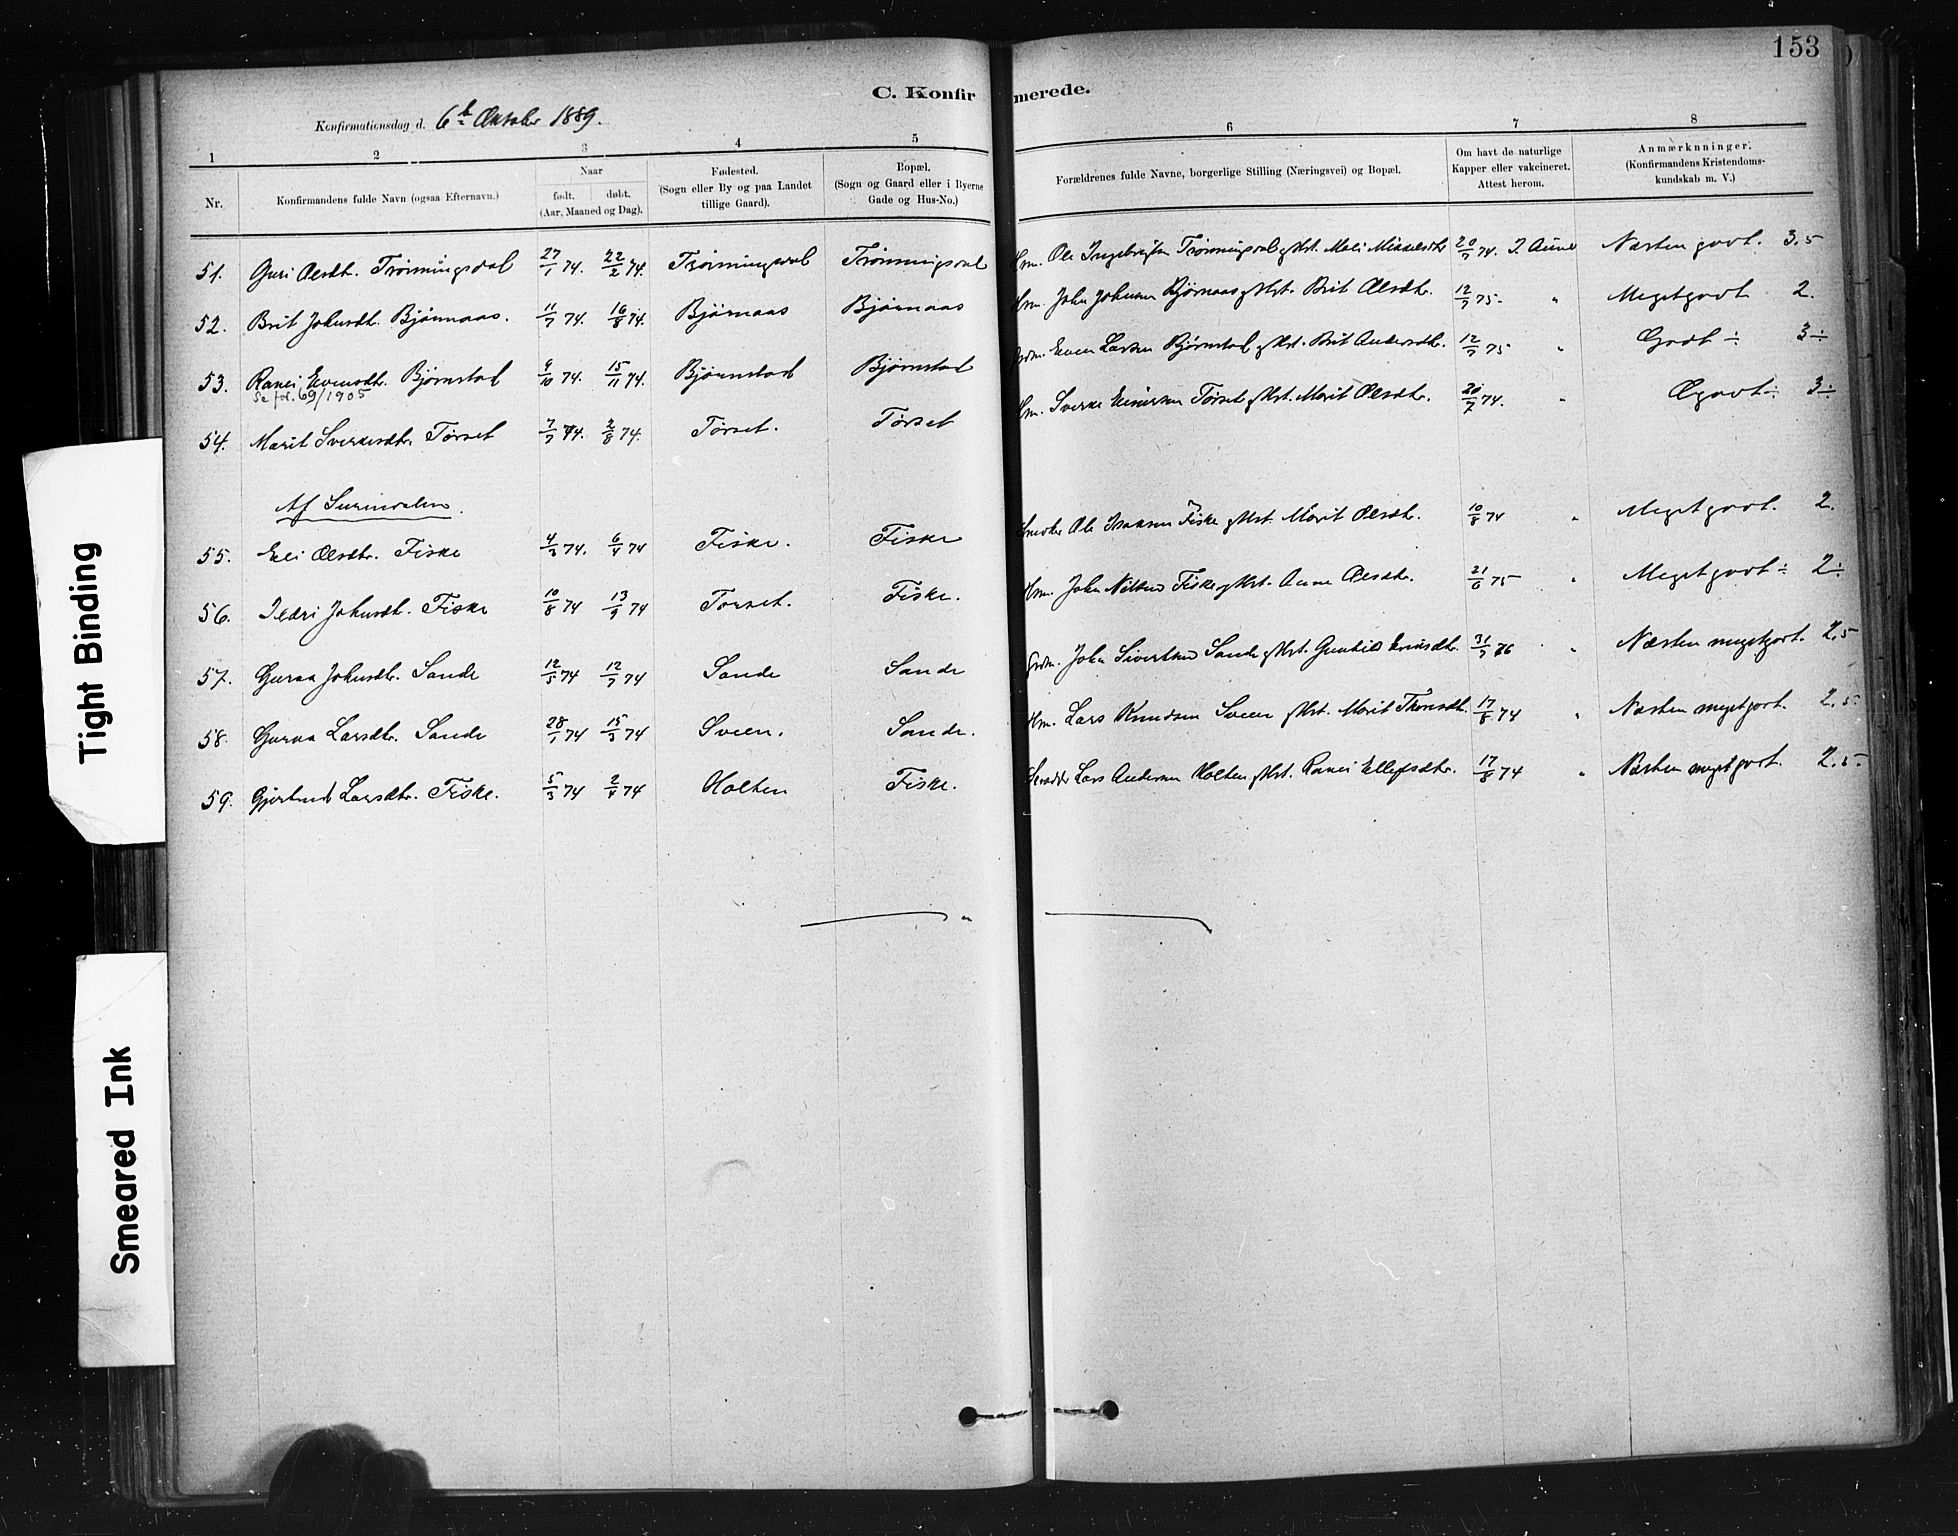 153
C. Konfirmerede.
Konfirmationsdag d. 6te Oktober 1889.
1 2 3 4 5 6 7 8
Nr.
Konfirmandens fulde Navn (ogsaa Efternavn.)
Naar
født. døbt.
(Aar, Maaned og Dag).
Fødested.
(Sogn eller By og paa Landet
tillige Gaard).
Bopæl.
(Sogn og Gaard eller i Byerne
Gade og Hus-No.)
Forældrenes fulde Navne, borgerlige Stilling (Næringsvei) og Bopæl.
Om havt de naturlige
Kapper eller vakcineret.
Attest herom.
Anmærknninger.
(Konfirmandens Kristendoms-
kundskab m. V.)
51. Guri Olsdtr. Trønningsdal 27/1 74. 22/2 74. Trønningsdal Trønningsdal Hm. Ole Ingebrigtsen Trønningsdal g Hst. Mali Mikkelsdtr 20/7 74. I. Aune Næsten godt. 3.5
52. Brit Johnsdtr. Bjørnaas. 11/7 74. 16/8 74. Bjørnaas Bjørnaas Hm. John Johnsen Bjørnaas g Hst. Brit Olsdtr. 12/7 75. " Megetgodt 2.
53. Ranei Evensdtr. Bjørnstad 9/10 74. 15/11 74. Bjørnstad Bjørnstad Grdm. Even Larsen Bjørnstad g Hst. Brit Andersdtr. 12/7 75 " Godt ÷ 3÷
Se fol. 69/1905
54. Marit Sverkesdtr. Tørset 7/7 74. 2/8 74. Tørset. Tørset Hm. Sverke Tørset g Hst. Marit Olsdtr. 20/7 74. " godt ÷ 3÷
Af Surendalen.
55. Eli Olsdtr. Fiske 4/3 74. 6/4 74 Fiske. Fiske Ole Isaksen Fiske g Hst. Marit Olsdtr. 10/8 74 " Megetgodt. 2.
56. Ildri Johnsdtr. Fiske 10/8 74 13/9 74 Torset. Fiske. Hm. John Nilsen Fiske g Hst. Anne Olsdtr. 21/6 75 " Megetgodt ÷ 2÷
57. Guraa Johnsdtr. Sande 12/5 74 12/7 74 Sande Sande Grdm. John Sivertsen Sande g Hst. Gunhild 31/7 76 " Næsten megetgodt. 2.5
58. Guraa Larsdtr. Sande 28/1 74 15/3 74 Sveen. Sande. Hm. Lars Knudsen Sveen g Hst. Marit Thoresdtr. 17/8 74 " Næsten megetgodt. 2.5
59. Gjertrud Larsdtr. Fiske. 5/3 74 2/4 74 Holten Fiske. Skrædder Lars Andersen Holten g Hst. Ranei Ellefsdtr. 17/8 74 " Næsten megetgodt. 2.5
Tight Binding
Smeared Ink